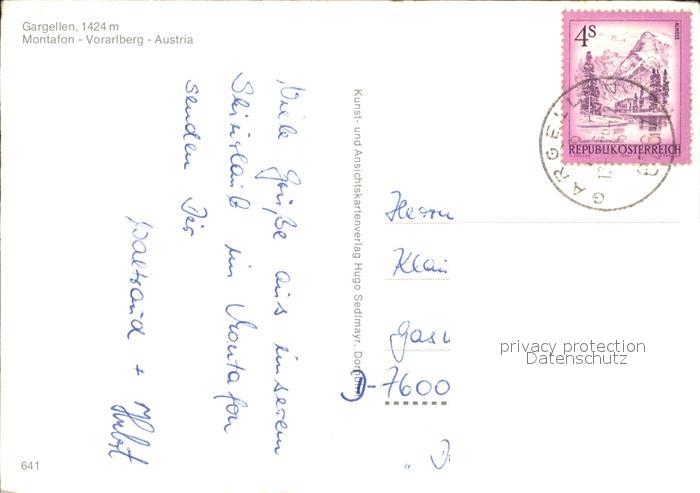 Gargellen, 1424 m
Montafon - Vorarlberg - Austria
Viele Grüße aus unserem
Skiurlaub im Montafon
senden Dir
Waltraud + Hubert
641
Kunst- und Ansichtskartenverlag Hugo Sedlmayr, Dornbirn
4S
ALMSEE
REPUBLIK ÖSTERREICH
GARGELLEN
Herrn
Klau
Gasw
D-7600
privacy protection
Datenschutz